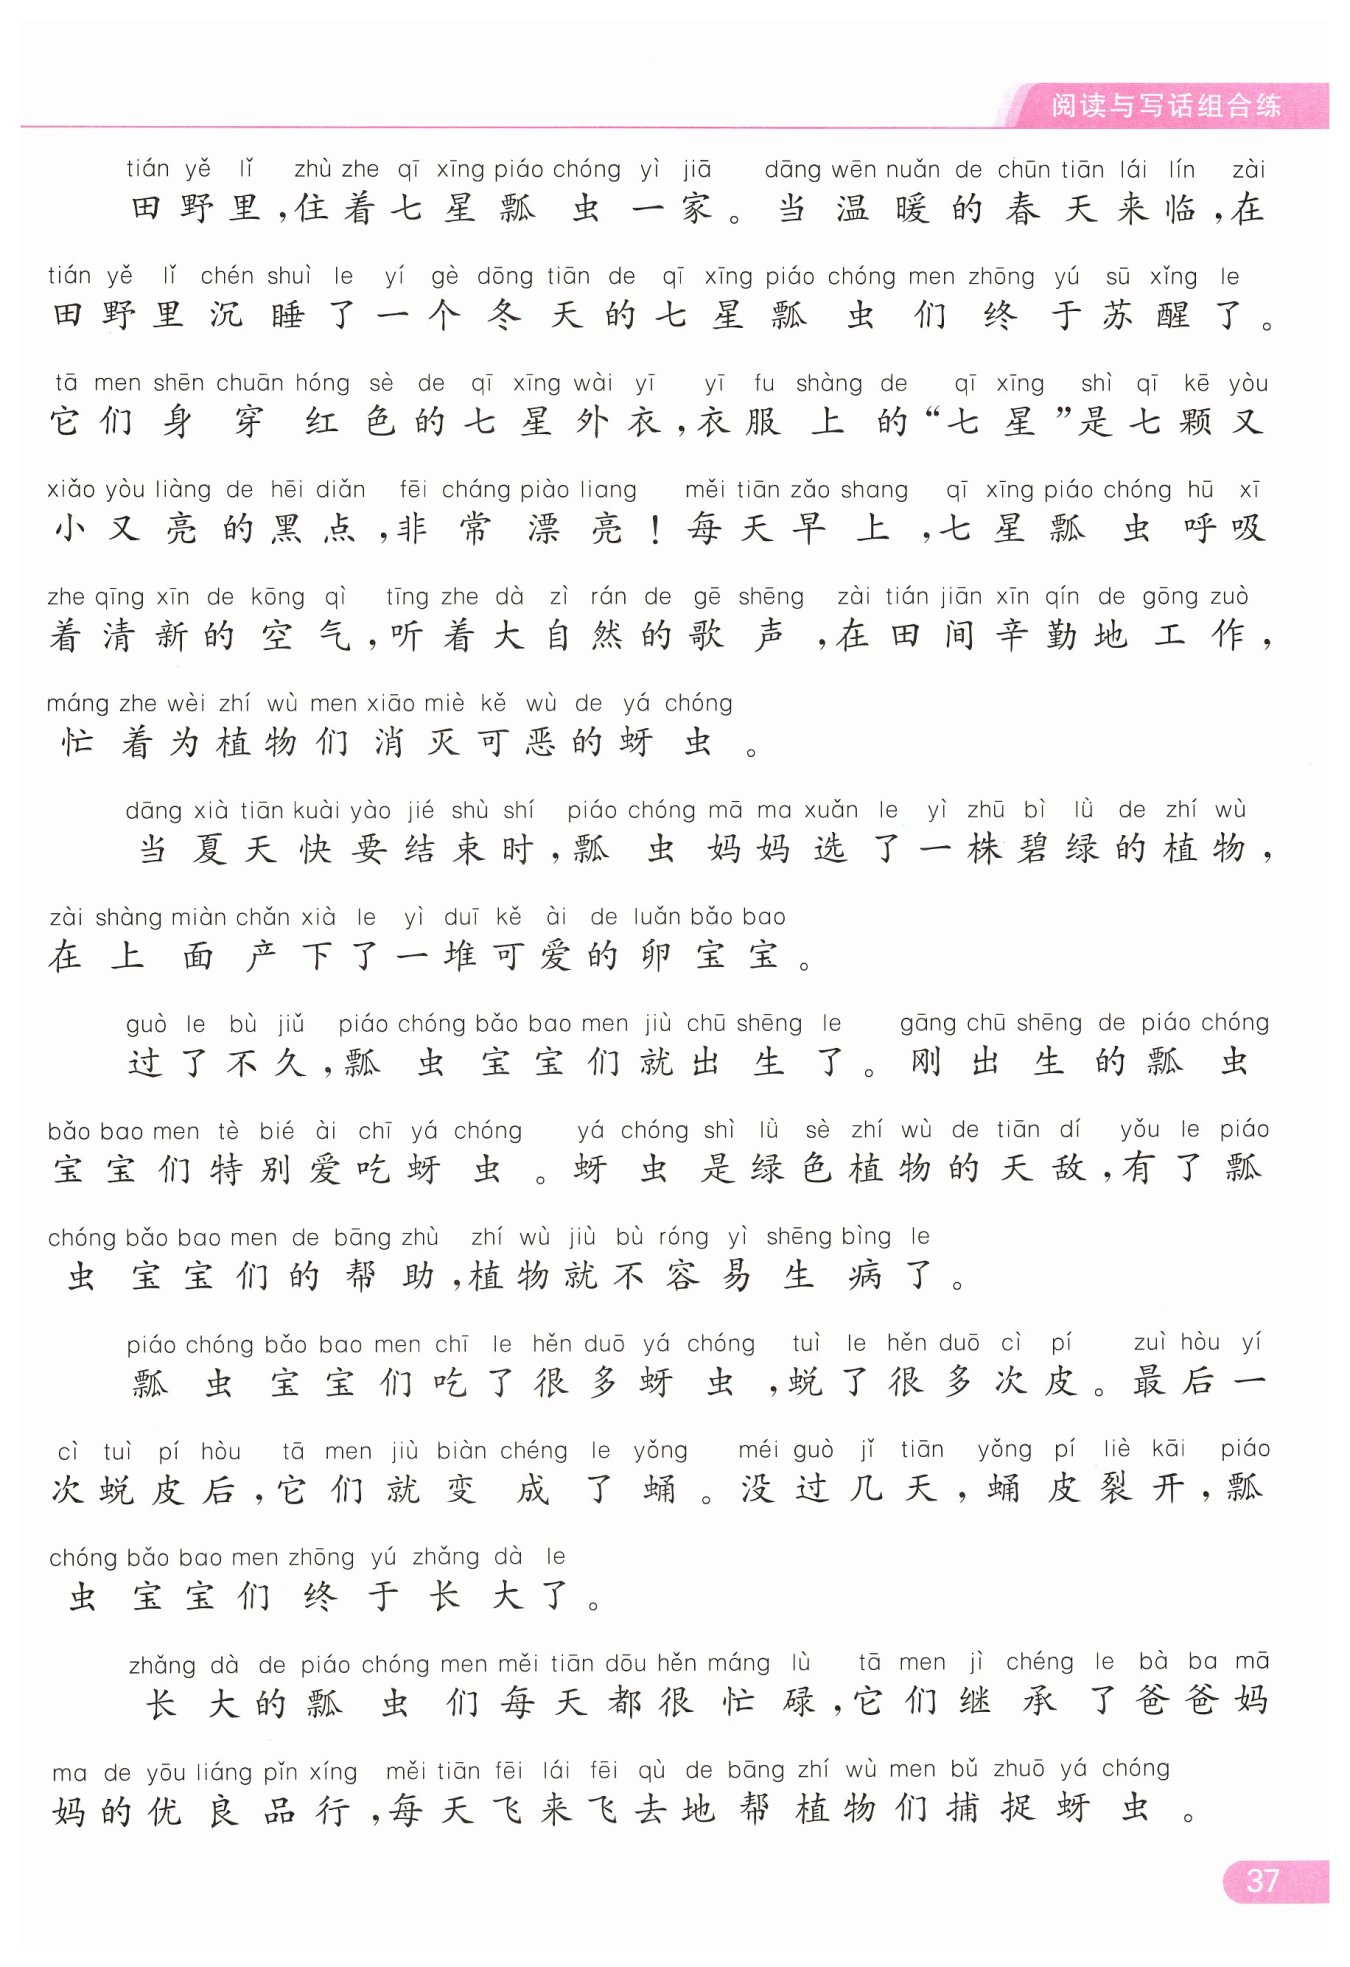 阅读与写话组合练
tián yě lǐ zhù zhe qī xīng piáo chóng yì jiā dāng wēn nuǎn de chūn tiān lái lín zài
田野里,住着七星瓢虫一家。当温暖的春天来临,在
tián yě lǐ chén shuì le yí gè dōng tiān de qī xīng piáo chóng men zhōng yú sū xǐng le
田野里沉睡了一个冬天的七星瓢虫们终于苏醒了。
tā men shēn chuān hóng sè de qī xīng wài yī yī fu shàng de qī xīng shì qī kē yòu
它们身穿红色的七星外衣,衣服上的“七星”是七颗又
xiǎo yòu liàng de hēi diǎn fēi cháng piào liang měi tiān zǎo shang qī xīng piáo chóng hū xī
小又亮的黑点,非常漂亮!每天早上,七星瓢虫呼吸
zhe qīng xīn de kōng qì tīng zhe dà zì rán de gē shēng zài tián jiān xīn qín de gōng zuò
着清新的空气,听着大自然的歌声,在田间辛勤地工作,
máng zhe wèi zhí wù men xiāo miè kě wù de yá chóng
忙着为植物们消灭可恶的蚜虫。
dāng xià tiān kuài yào jié shù shí piáo chóng mā ma xuǎn le yì zhū bì lǜ de zhí wù
当夏天快要结束时,瓢虫妈妈选了一株碧绿的植物,
zài shàng miàn chǎn xià le yì duī kě ài de luǎn bǎo bao
在上面产下了一堆可爱的卵宝宝。
guò le bù jiǔ piáo chóng bǎo bao men jiù chū shēng le gāng chū shēng de piáo chóng
过了不久,瓢虫宝宝们就出生了。刚出生的瓢虫
bǎo bao men tè bié ài chī yá chóng yá chóng shì lǜ sè zhí wù de tiān dí yǒu le piáo
宝宝们特别爱吃蚜虫。蚜虫是绿色植物的天敌,有了瓢
chóng bǎo bao men de bāng zhù zhí wù jiù bù róng yì shēng bìng le
虫宝宝们的帮助,植物就不容易生病了。
piáo chóng bǎo bao men chī le hěn duō yá chóng tuì le hěn duō cì pí zuì hòu yí
瓢虫宝宝们吃了很多蚜虫,蜕了很多次皮。最后一
cì tuì pí hòu tā men jiù biàn chéng le yǒng méi guò jǐ tiān yǒng pí liè kāi piáo
次蜕皮后,它们就变成了蛹。没过几天,蛹皮裂开,瓢
chóng bǎo bao men zhōng yú zhǎng dà le
虫宝宝们终于长大了。
zhǎng dà de piáo chóng men měi tiān dōu hěn máng lù tā men jì chéng le bà ba mā
长大的瓢虫们每天都很忙碌,它们继承了爸爸妈
ma de yōu liáng pǐn xíng měi tiān fēi lái fēi qù de bāng zhí wù men bǔ zhuō yá chóng
妈的优良品行,每天飞来飞去地帮植物们捕捉蚜虫。
37